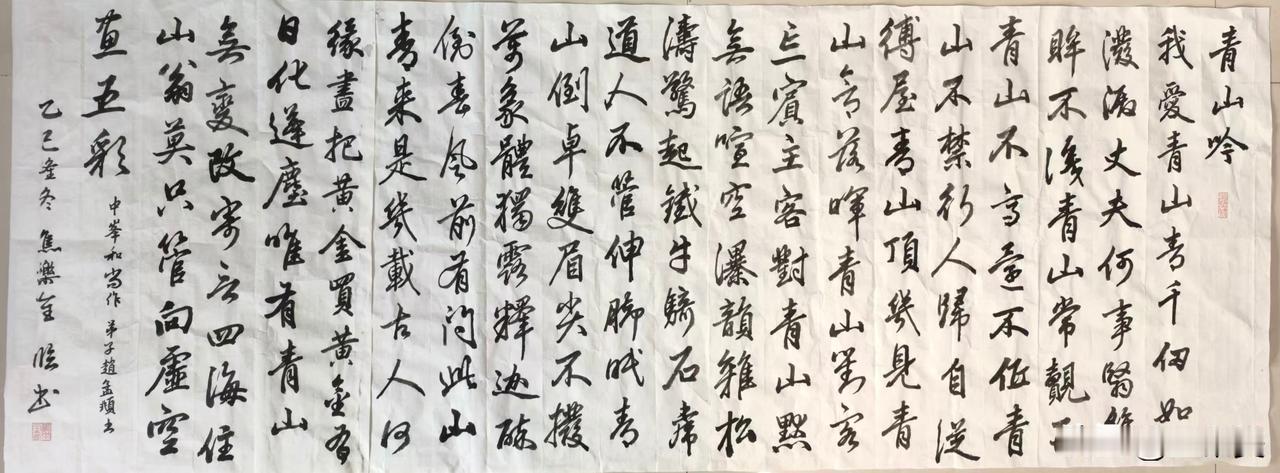 青山吟
我愛青山青千仞如
潑丈夫何事
眸不淺青山常覿
青山不高還不低青
山不禁行人歸自從
縛屋青山頂幾見青
山含落暉青山對客
忘賓主客對青山默
無語喧空瀑韻雜松
濤驚起鐵牛騎石虎
道人不管伸腳眠青
山倒卓雙眉尖不撥
萬象體獨露釋迦醉
倒春風前有問此山
青來是幾載古人何
緣盡把黃金買黃金有
日化遊塵唯有青山
無變改寄言四海住
山翁莫只管向虛空
畫五彩
中峯和尚作 弟子趙孟頫書
乙巳冬 焦樂全 臨書